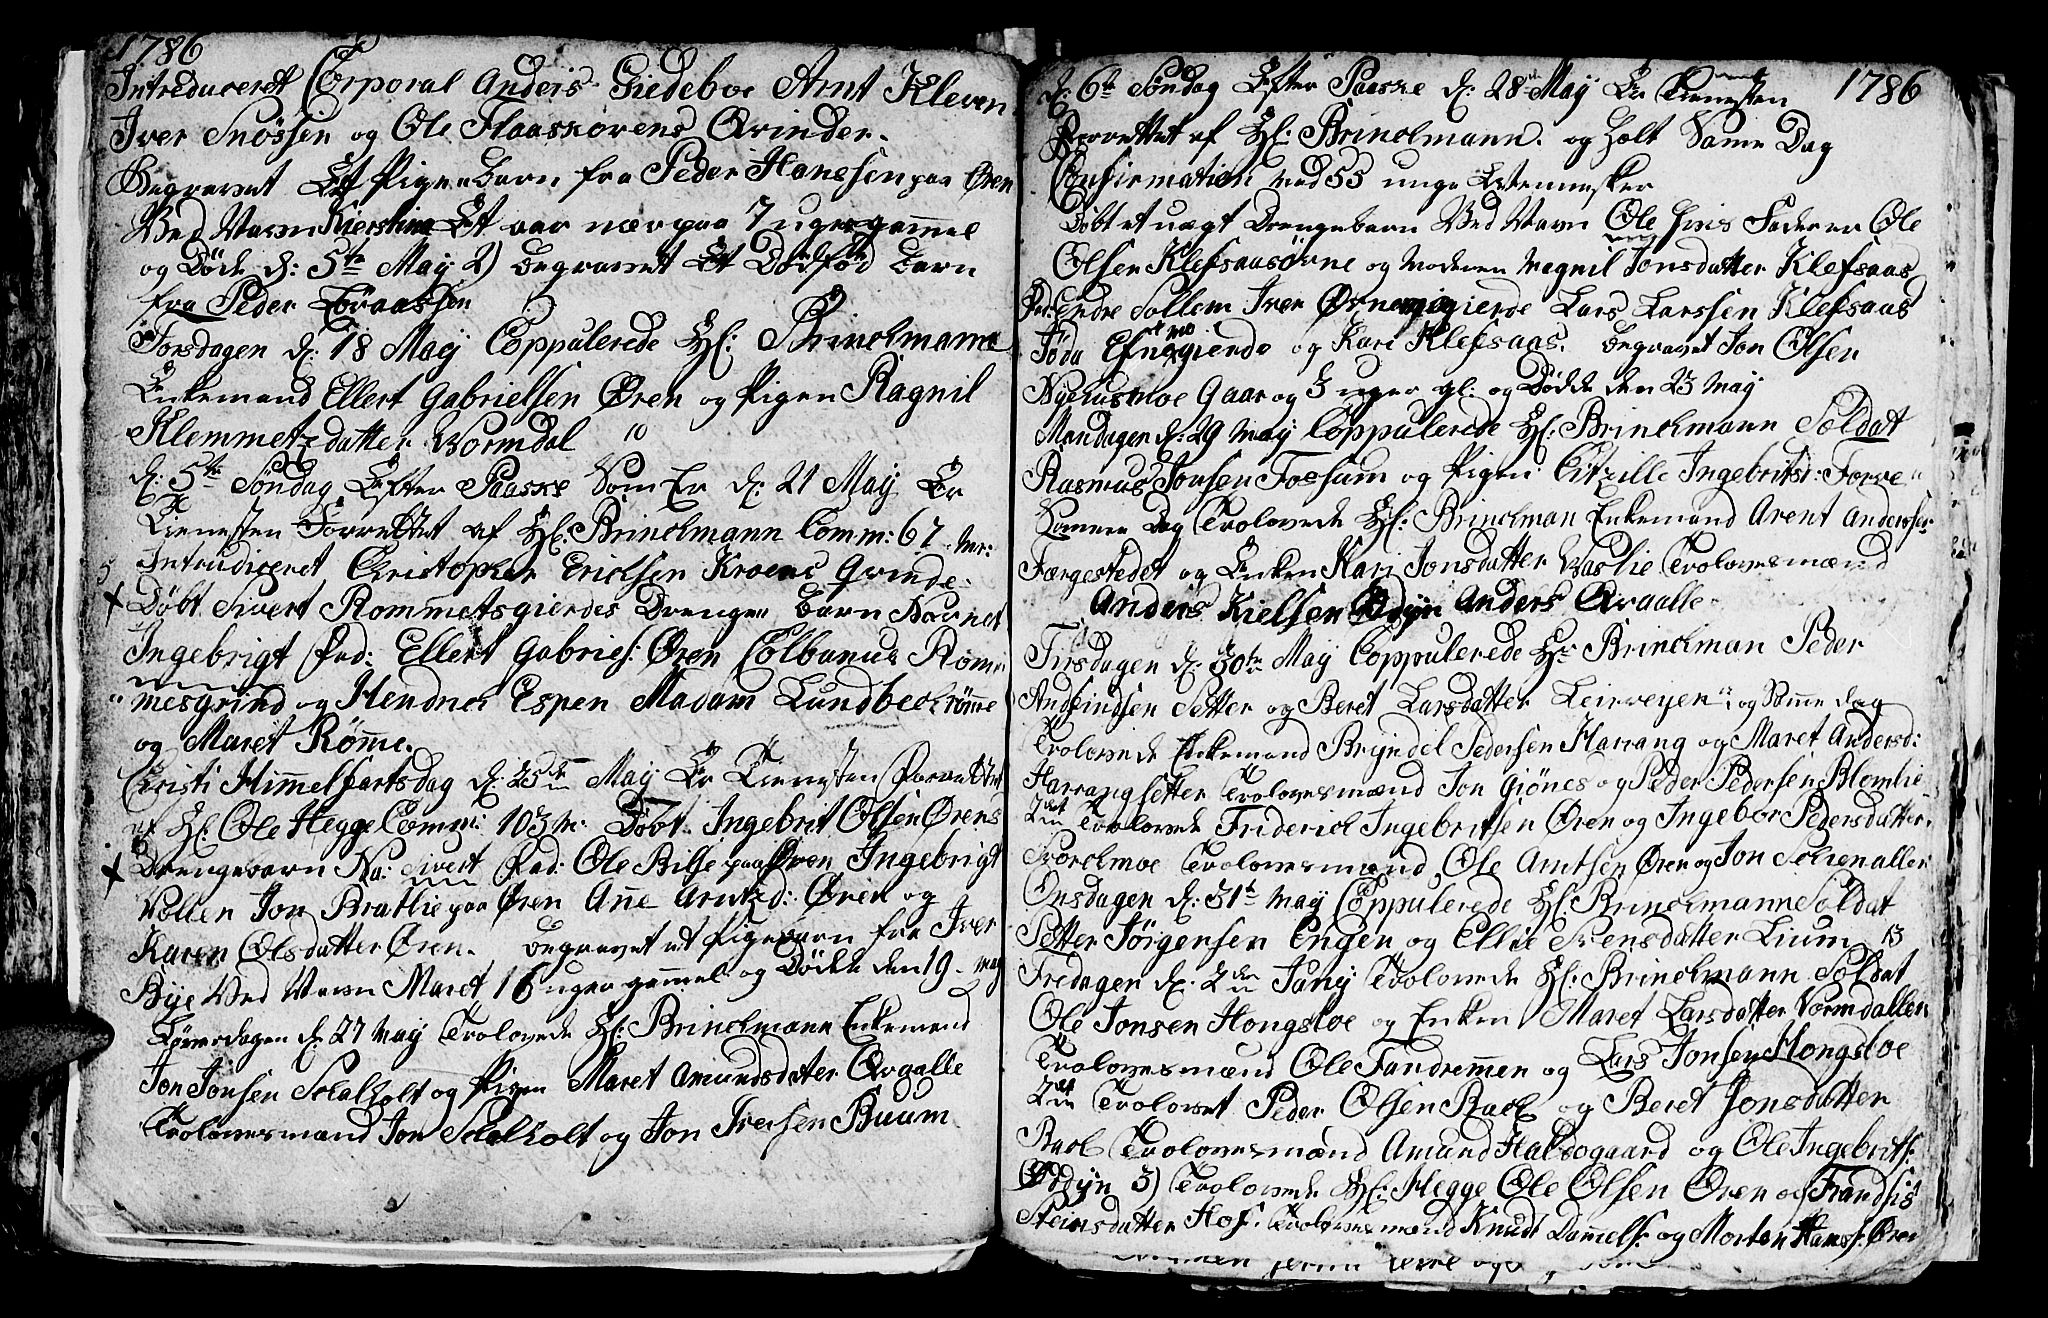 1786
Introduceret Corporal Anders Giedeboe Arnt Kleven
Iver Snössen og Ole Flaaskovens Qvinder.
Begravet Et Pigebarn fra Peder Hanssen paa Ören
Ved Navn Kierstina Et aar nær paa 7 uger gam̅el
og Döde d: 5te May 2) begravet Et Dödfød barn
fra Peder Toraassen
Torsdagen d: 18 May Coppulerede Hr: Brinchmann
Enkemand Ellert Gabrielsen Ören og Pigen Ragnil
Klemmetzdatter Wormdal 10
d: 5te Söndag Efter Paaske Som Er d: 21 May Er
Tienesten Forrettet af Hr: Brinchmann Comm: 67 Mr:
5 Intrudiceret Christopher Erichsen Kroens Qvinde.
Döbt Sivert Rommetsgierdes Drenge Barn Navnet
Ingebrigt Fad: Ellert Gabriels: Ören Colbanus Rom
mesgrind og Hendrich Espen Madam Lundbech römme
og Maret Röm̅e.
Christi Him̅elfartsdag d: 25de May Er Tienesten Forrettet
af Hr: Ole Hegge Comm: 103 Mr: Döbt Ingebrit Olsen Örens
Drengebarn Na: Sivert Fad: Ole Bilse paa Ören Ingebrigt
Vollen Jon Bratlie paa Ören An̅e Arntzd: Ören og
Karen Olsdatter Ören. Begravet et Pigebarn fra Iver
Bye Ved Navn Maret 16 uger gam̅el og Dödde den 19 may
Löverdagen d: 27 May Trolovede Hr: Brinchmann Enkemand
Jon Jonsen Schalholt og Pigen Maret Amundsdater Qvaalle
Trolovesmænd Jon Schalholt og Jon Iversen Buum
d: 6te Söndag Efter Paaske d: 28de May Er Tienesten 1786
Forrettet af Hr: Brinchmann. og holt Same Dag
Confirmation med 55 unge Mennesker
Döbt et uægt Drengebarn Ved Navn Ole hvis Fader er Ole
Olsen Klefsaasörne og Moderen Magnil Jonsdatter Klefsaas
Fad: Endre Sollem Iver Örnemgierde Lars Larssen Klefsaas
Jöra Efnegierde og Kari Klefsaas. begravet Jon Olsen
Nyerusmoe 9 aar og 3 uger gl: og Dödde den 23 May
Mandagen d: 29 May Coppulerede Hr: Brinchmann Soldat
Rasmus Jonsen Fossum og Pigen Citzille Ingebritsd: Forve
Samme Dag Trolovede Hr: Brinchman Enkemand Arent Anderssen
Færgestedet og Enken Kari Jonsdatter Waslie Trolovesmænd
Anders Kielsen Ödyn Anders Qvaalle.
Tirsdagen d: 30te May Coppulerede Hr Brinchman Peder
Andfindsen Setter og Beret Larsdatter Leirveyen og Sam̅e dag
Trolovede Enkemand Bryndel Pedersen Harrang og Maret Andersd:
Harrangsetter Trolovesmænd Jon Giönes og Peder Pedersen Blomlie
2det Trolovede Friderich Ingebritsen Ören og Ingebor Pedersdatter
Storchmoe Trolovesmænd Ole Arntsen Ören og Jon Solienaller
Onsdagen d: 31te May Coppulerede Hr: Brinchmann Soldat
Petter Jörgensen Engen og Ellie Svensdatter Lium 13
Fredagen d: 2den Juny Trolovede Hr: Brinchmann Soldat
Ole Jonsen Hongsloe og Enken Maret Larsdatter Vormdallen
Trolovesmænd Ole Fandrem̅en og Lars Jonsen Hongsloe
2det Trolovet Peder Olsen Rach og Beret Jonsdatter
Rach Trolovesmænd Amund Halsogaard og Ole Ingebrits:
Ödyn 3) Trolovede Hr: Hegge Ole Olsen Ören og Frandsis
Steinsdatter Hof: Trolovesmænd Knudt Dam̅els: og Morten Hanss: Ören